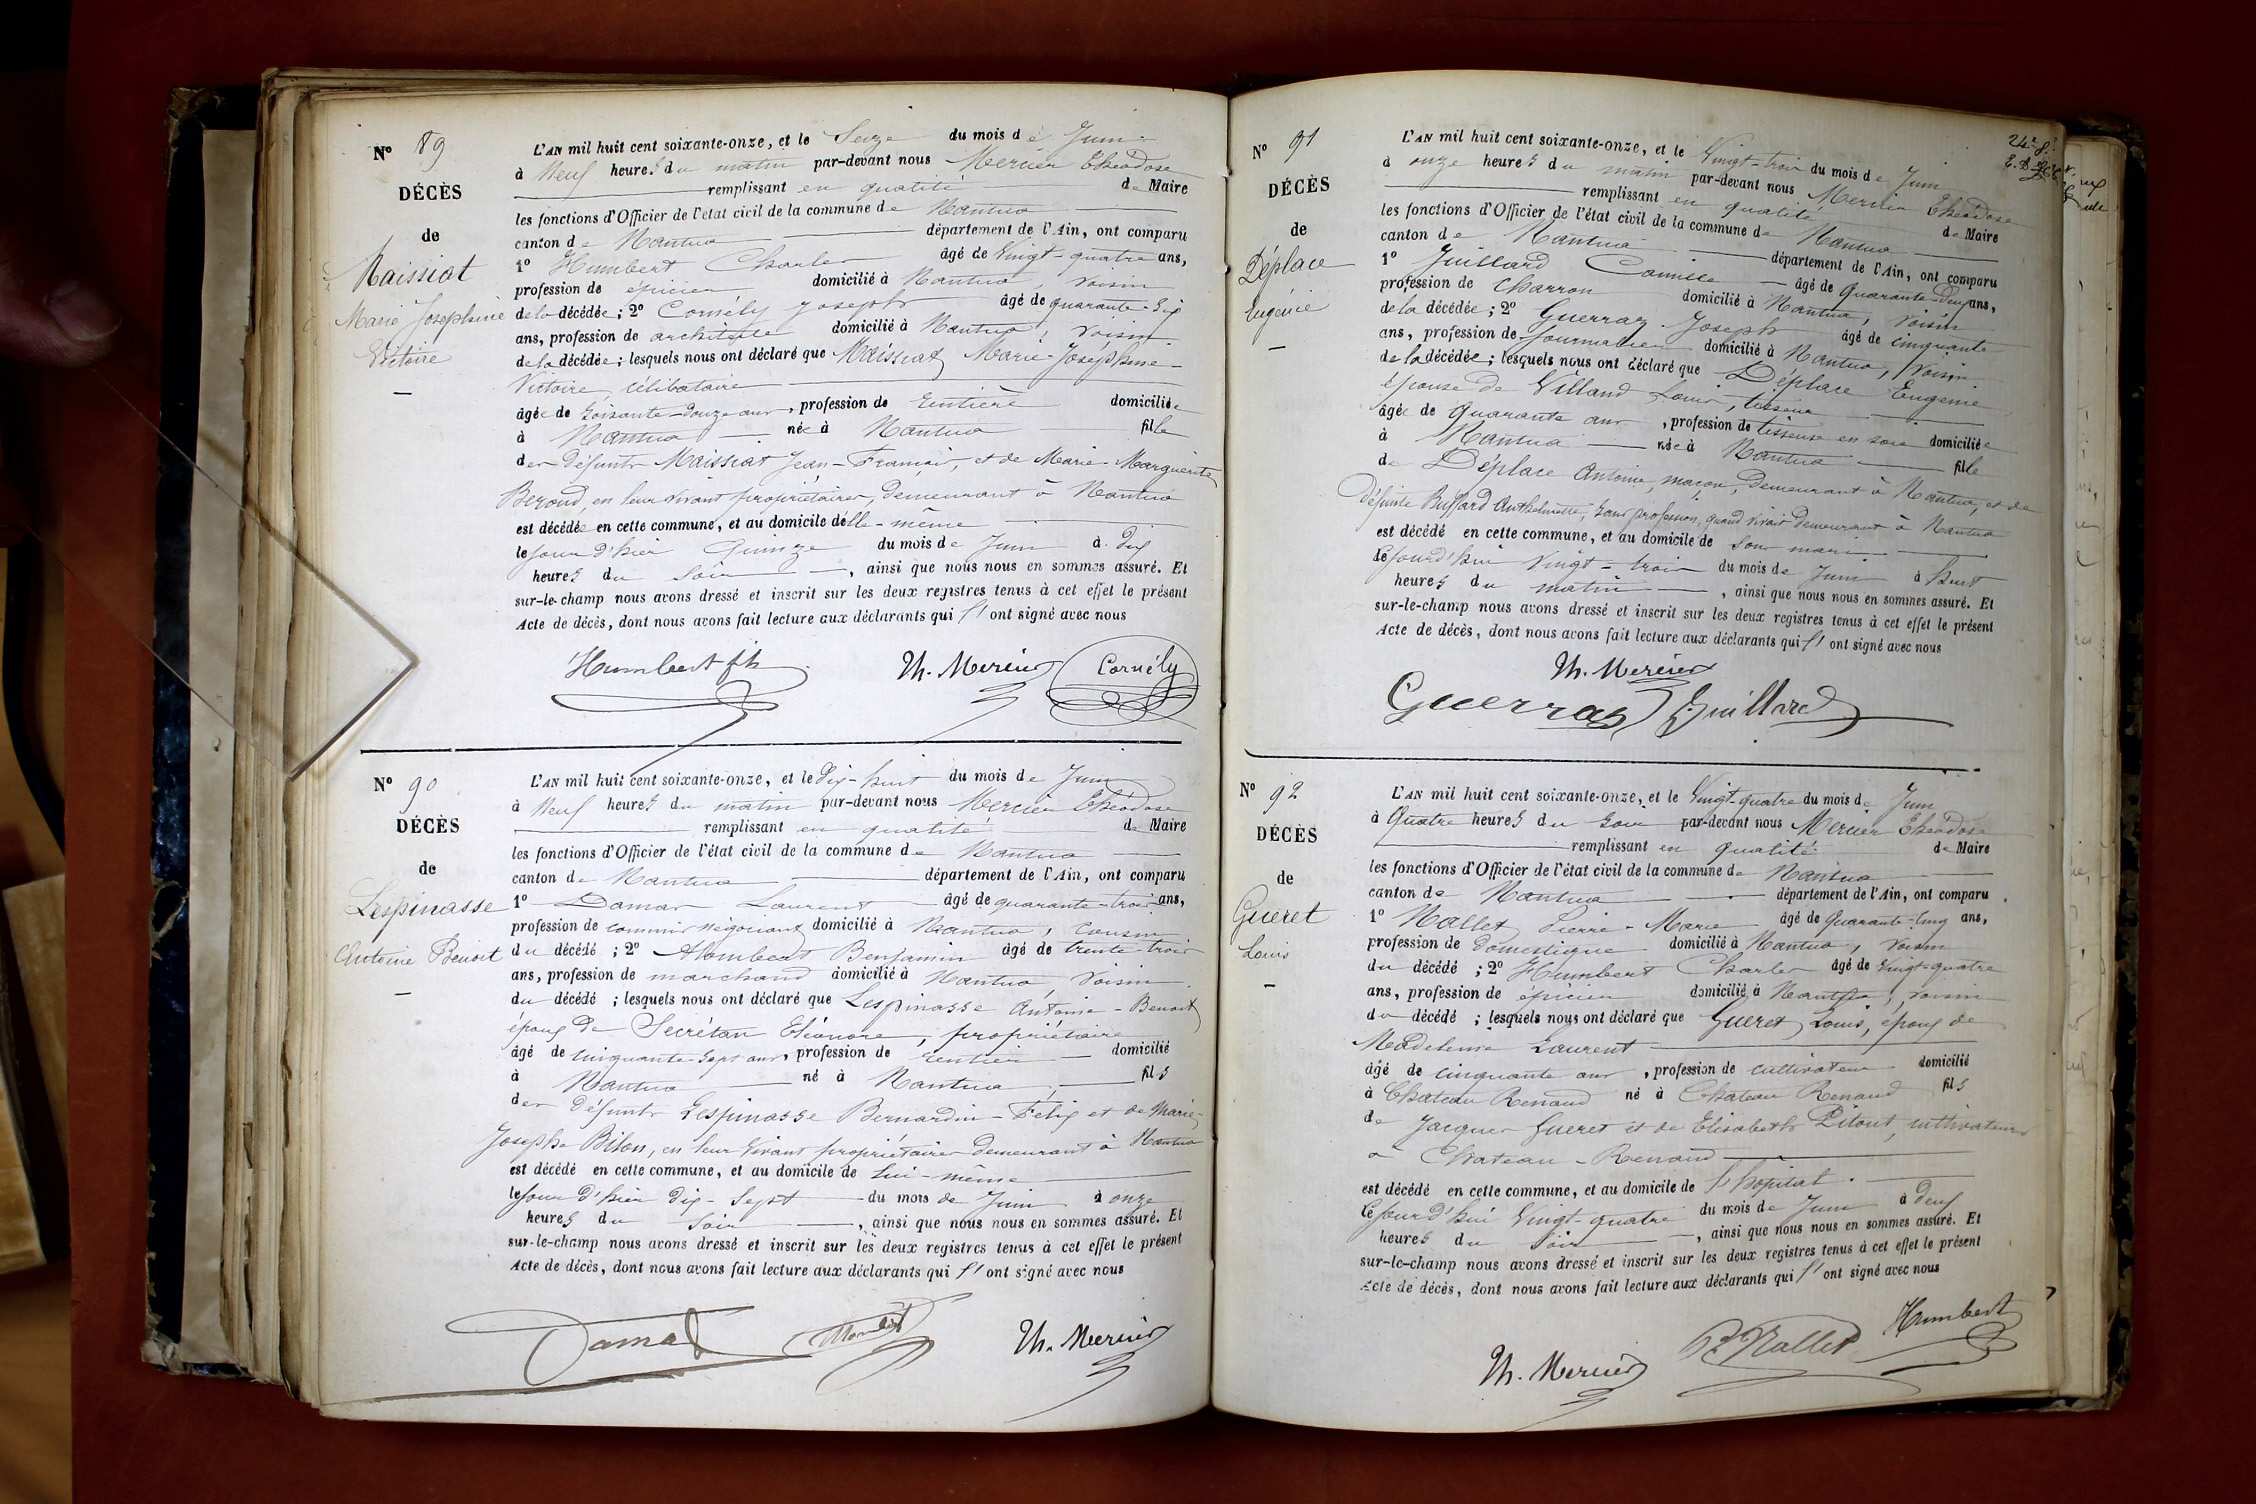 N° 89
DÉCÈS
de
Maissiat
Marie Josephine
Victoire
L'AN mil huit cent soixante-onze, et le Seize du mois de Juin
à Neuf heures du matin par-devant nous Mercier Théodose
remplissant en qualité de Maire
les fonctions d'Officier de l'état civil de la commune de Nantua
canton de Nantua département de l'Ain, ont comparu
1° Humbert Charles âgé de Vingt-quatre ans,
profession de épicier domicilié à Nantua, voisin
de la décédée; 2° Cornély Joseph âgé de quarante-six
ans, profession de architecte domicilié à Nantua, voisin
de la décédée; lesquels nous ont déclaré que Maissiat Marie-Josephine-
Victoire, célibataire
âgée de soixante-douze ans, profession de rentière domiciliée
à Nantua née à Nantua fille
des défunts Maissiat Jean-François, et de Marie-Marguerite
Beroud, en leur vivant propriétaires, demeurant à Nantua
est décédée en cette commune, et au domicile d'elle-même
le jour d'hier Quinze du mois de Juin à dix
heures du soir, ainsi que nous nous en sommes assuré. Et
sur-le-champ nous avons dressé et inscrit sur les deux registres tenus à cet effet le présent
Acte de décès, dont nous avons fait lecture aux déclarants qui l'ont signé avec nous
Humbert fils Th. Mercier Cornély
N° 90
DÉCÈS
de
Lespinasse
Antoine Benoit
L'AN mil huit cent soixante-onze, et le dix-huit du mois de Juin
à Neuf heures du matin par-devant nous Mercier Théodose
remplissant en qualité de Maire
les fonctions d'Officier de l'état civil de la commune de Nantua
canton de Nantua département de l'Ain, ont comparu
1° Damas Laurent âgé de quarante-trois ans,
profession de commis négociant domicilié à Nantua, cousin
du décédé; 2° Alombert Benjamin âgé de trente-trois
ans, profession de marchand domicilié à Nantua, voisin
du décédé; lesquels nous ont déclaré que Lespinasse Antoine-Benoit
époux de Secrétan Eléonore, propriétaire
âgé de cinquante-sept ans, profession de rentier domicilié
à Nantua né à Nantua, fils
des défunts Lespinasse Bernardin-Félix et de Marie-
Josephe Bilon, en leur vivant propriétaires demeurant à Nantua
est décédé en cette commune, et au domicile de lui-même
le jour d'hier dix-sept du mois de Juin à onze
heures du soir, ainsi que nous nous en sommes assuré. Et
sur-le-champ nous avons dressé et inscrit sur les deux registres tenus à cet effet le présent
Acte de décès, dont nous avons fait lecture aux déclarants qui l'ont signé avec nous
Damas Alombert Th. Mercier
N° 91
DÉCÈS
de
Déplace
Eugénie
L'AN mil huit cent soixante-onze, et le Vingt-trois du mois de Juin
à onze heures du matin par-devant nous Mercier Théodose
remplissant en qualité de Maire
les fonctions d'Officier de l'état civil de la commune de Nantua
canton de Nantua département de l'Ain, ont comparu
1° Juillard Camille âgé de Quarante-deux ans,
profession de charron domicilié à Nantua, voisin
de la décédée; 2° Guerraz Joseph âgé de cinquante
ans, profession de Journalier domicilié à Nantua, voisin
de la décédée; lesquels nous ont déclaré que Déplace Eugénie
épouse de Villand Louis, tisseur
âgée de Quarante ans, profession de tisseuse en soie domiciliée
à Nantua née à Nantua fille
de Déplace Antoine, maçon, demeurant à Nantua, et de
défunte Buffard Anthelmette, sans profession, quand vivait demeurant à Nantua
est décédé en cette commune, et au domicile de son mari
le jourd'hui Vingt-trois du mois de Juin à huit
heures du matin, ainsi que nous nous en sommes assuré. Et
sur-le-champ nous avons dressé et inscrit sur les deux registres tenus à cet effet le présent
Acte de décès, dont nous avons fait lecture aux déclarants qui l'ont signé avec nous
Th. Mercier
Guerraz Juillard
N° 92
DÉCÈS
de
Gueret
Louis
L'AN mil huit cent soixante-onze, et le Vingt-quatre du mois de Juin
à Quatre heures du soir par-devant nous Mercier Théodose
remplissant en qualité de Maire
les fonctions d'Officier de l'état civil de la commune de Nantua
canton de Nantua département de l'Ain, ont comparu
1° Nallet Pierre-Marie âgé de Quarante-cinq ans,
profession de Domestique domicilié à Nantua, voisin
du décédé; 2° Humbert Charles âgé de Vingt-quatre
ans, profession de épicier domicilié à Nantua, voisin
du décédé; lesquels nous ont déclaré que Gueret Louis, époux de
Madeleine Laurent
âgé de cinquante ans, profession de cultivateur domicilié
à Chateau Renaud né à Chateau Renaud fils
de Jacques Gueret et de Elisabeth Pitout, cultivateurs
à Chateau-Renaud
est décédé en cette commune, et au domicile de l'hôpital
le jourd'hui Vingt-quatre du mois de Juin à deux
heures du soir, ainsi que nous nous en sommes assuré. Et
sur-le-champ nous avons dressé et inscrit sur les deux registres tenus à cet effet le présent
Acte de décès, dont nous avons fait lecture aux déclarants qui l'ont signé avec nous
Th. Mercier P. Nallet Humbert